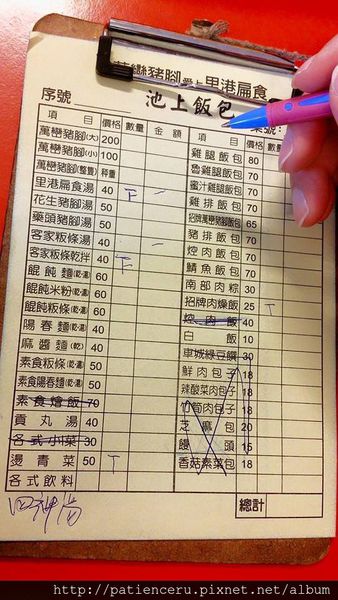 萬巒豬腳愛上里港扁食
序號 池上飯包 桌號:
項 目 價格 數量 金 額
萬巒豬腳(大) 200
萬巒豬腳(小) 100
萬巒豬腳(整隻) 秤重
里港扁食湯 40 下
花生豬腳湯 50
藥頭豬腳湯 50
客家粄條湯 40
客家粄條乾拌 40 下
餛飩麵(乾.湯) 60
餛飩米粉(乾.湯) 60
餛飩粄條(乾.湯) 60
陽春麵(乾.湯) 40
麻醬麵(乾) 40
素食粄條(乾.湯) 50
素食陽春麵(乾.湯) 50
素食燴飯 70
貢丸湯 40
各式小菜 30
燙青菜 50 T
各式飲料
四神湯
項 目 價格 數量 金 額
雞腿飯包 80
魯雞腿飯包 70
蜜汁雞腿飯包 70
雞排飯包 70
招牌萬巒豬腳飯包 65
豬排飯包 70
焢肉飯包 70
鯖魚飯包 70
南部肉粽 30
招牌肉燥飯 25 T
焢肉飯 40
白飯 10
車城綠豆饌 30
鮮肉包子 18
辣酸菜肉包子 18
竹筍肉包子 18
芝麻包 20
饅頭 15
香菇素菜包 18
總計
http://patienceru.pixnet.net/album